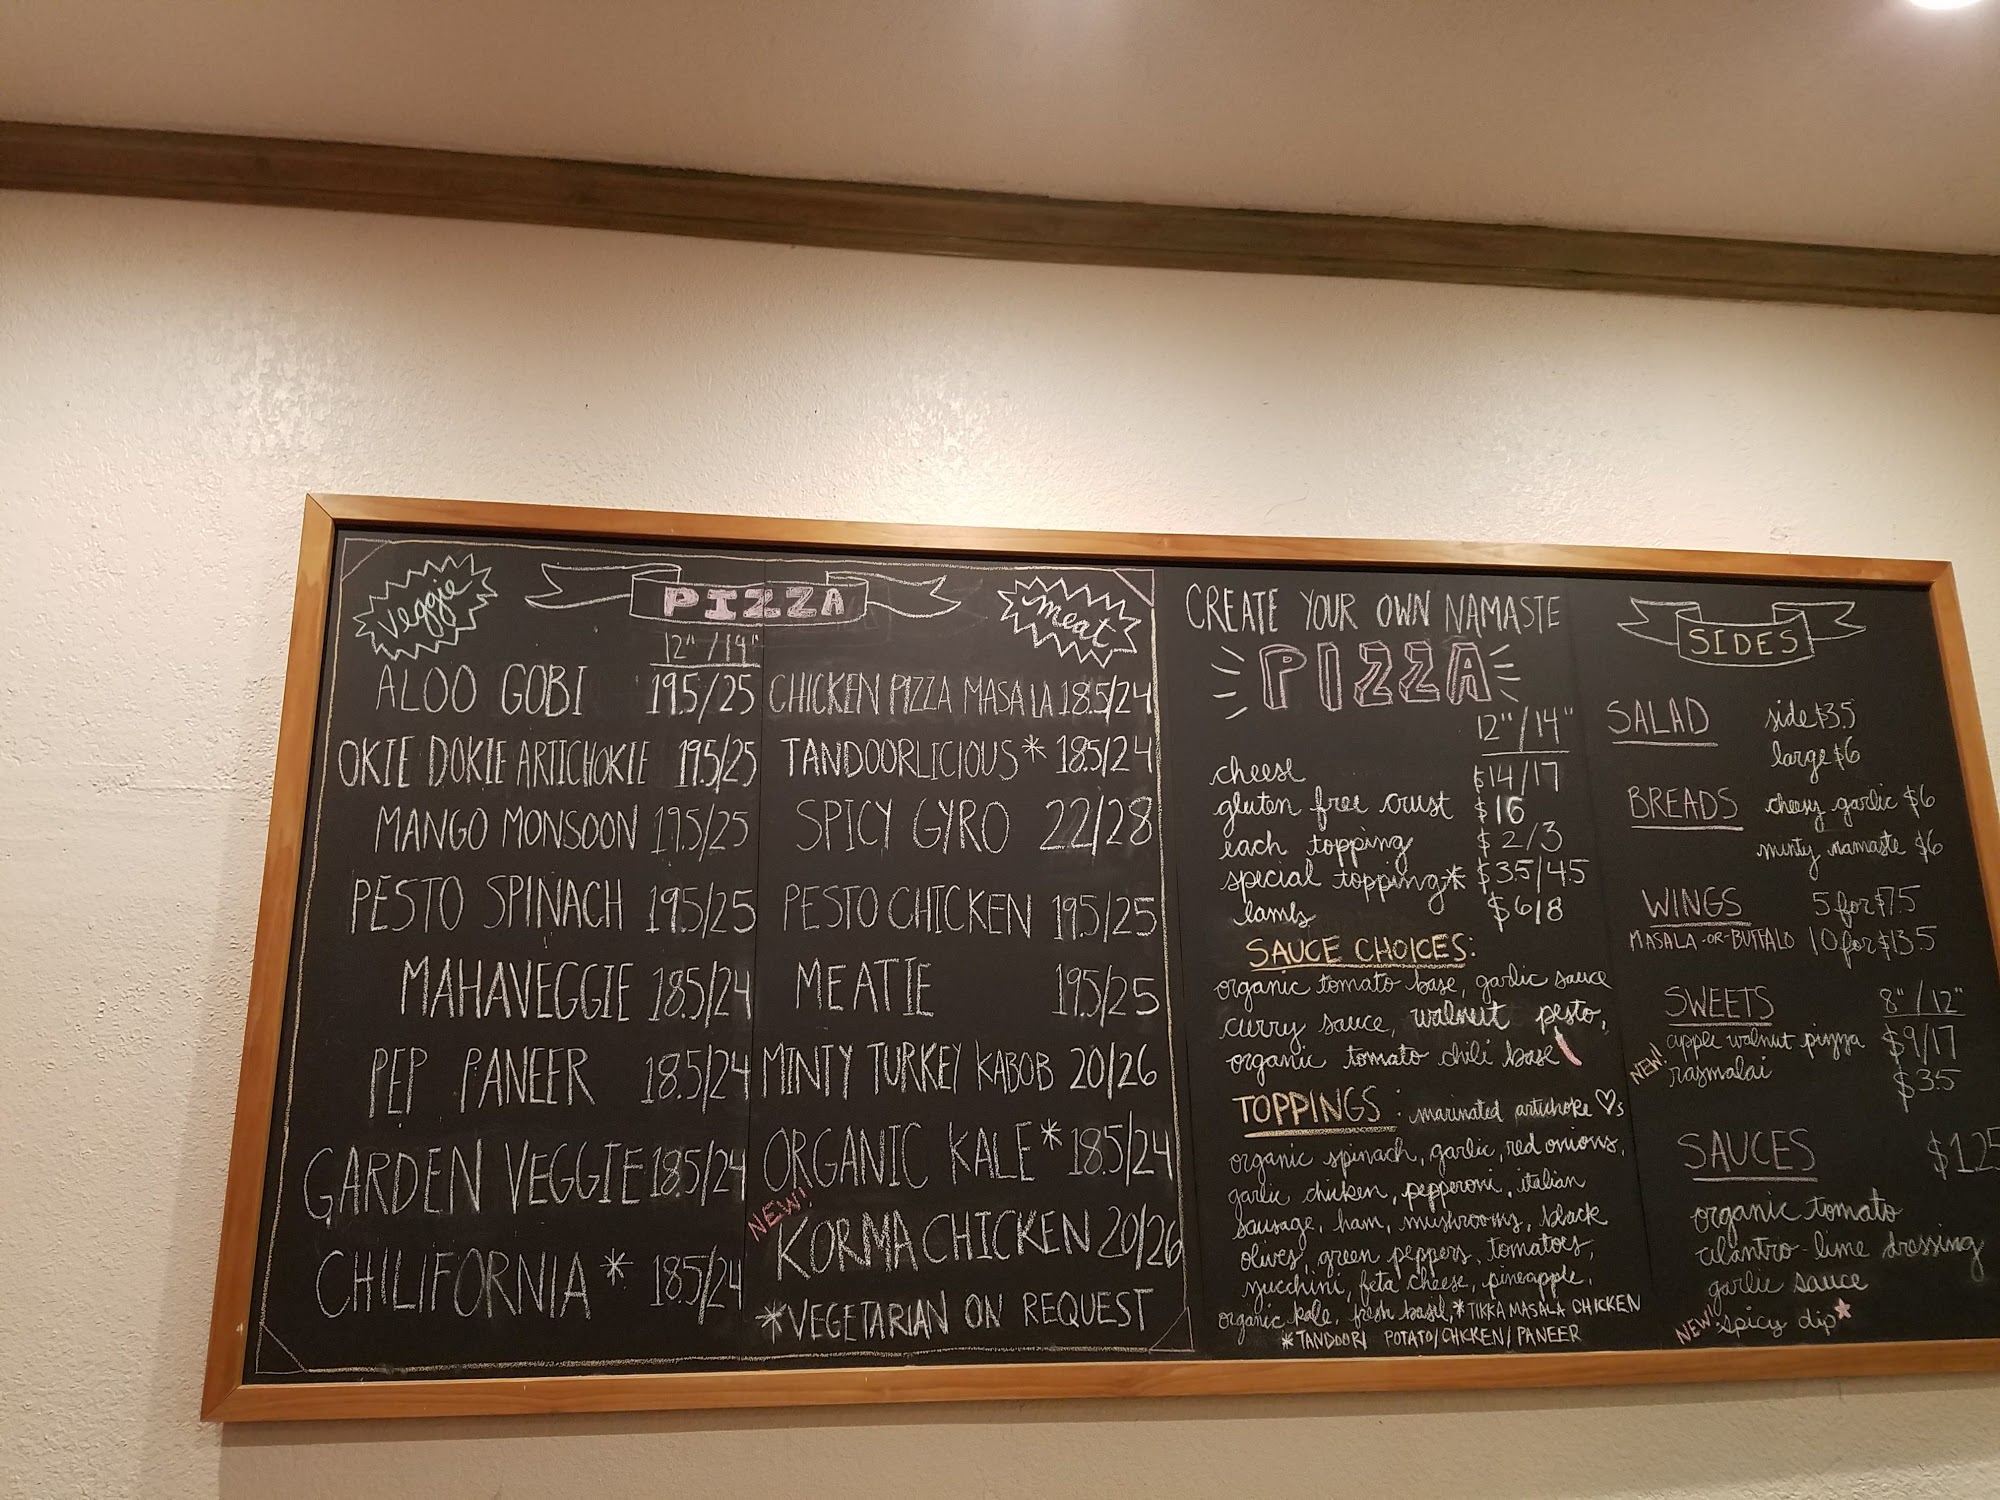 Veggie
PIZZA
meat
12" / 14"
ALOO GOBI 19.5/25
OKIE DOKIE ARTICHOKIE 19.5/25
MANGO MONSOON 19.5/25
PESTO SPINACH 19.5/25
MAHAVEGGIE 18.5/24
PEP PANEER 18.5/24
GARDEN VEGGIE 18.5/24
CHILIFORNIA * 18.5/24
CHICKEN PIZZA MASALA 18.5/24
TANDOORLICIOUS * 18.5/24
SPICY GYRO 22/28
PESTO CHICKEN 19.5/25
MEATIE 19.5/25
MINTY TURKEY KABOB 20/26
ORGANIC KALE * 18.5/24
NEW!
KORMA CHICKEN 20/26
*VEGETARIAN ON REQUEST
CREATE YOUR OWN NAMASTE
PIZZA
12" / 14"
cheese $14/17
gluten free crust $16
each topping $2/3
special topping* $3.5/4.5
lamb $6/8
SAUCE CHOICES:
organic tomato base, garlic sauce
curry sauce, walnut pesto,
organic tomato chili base
TOPPINGS : marinated artichoke ♡s
organic spinach, garlic, red onions,
garlic chicken, pepperoni, italian
sausage, ham, mushrooms, black
olives, green peppers, tomatoes,
zucchini, feta cheese, pineapple,
organic kale, fresh basil, *TIKKA MASALA CHICKEN
*TANDOORI POTATO/CHICKEN/PANEER
SIDES
SALAD side $3.5
large $6
BREADS cheesy garlic $6
minty namaste $6
WINGS 5 for $7.5
MASALA-OR-BUFFALO 10 for $13.5
SWEETS 8" / 12"
apple walnut pizza $9/17
NEW! rasmalai $3.5
SAUCES $1.25
organic tomato
cilantro-lime dressing
garlic sauce
NEW! spicy dip*